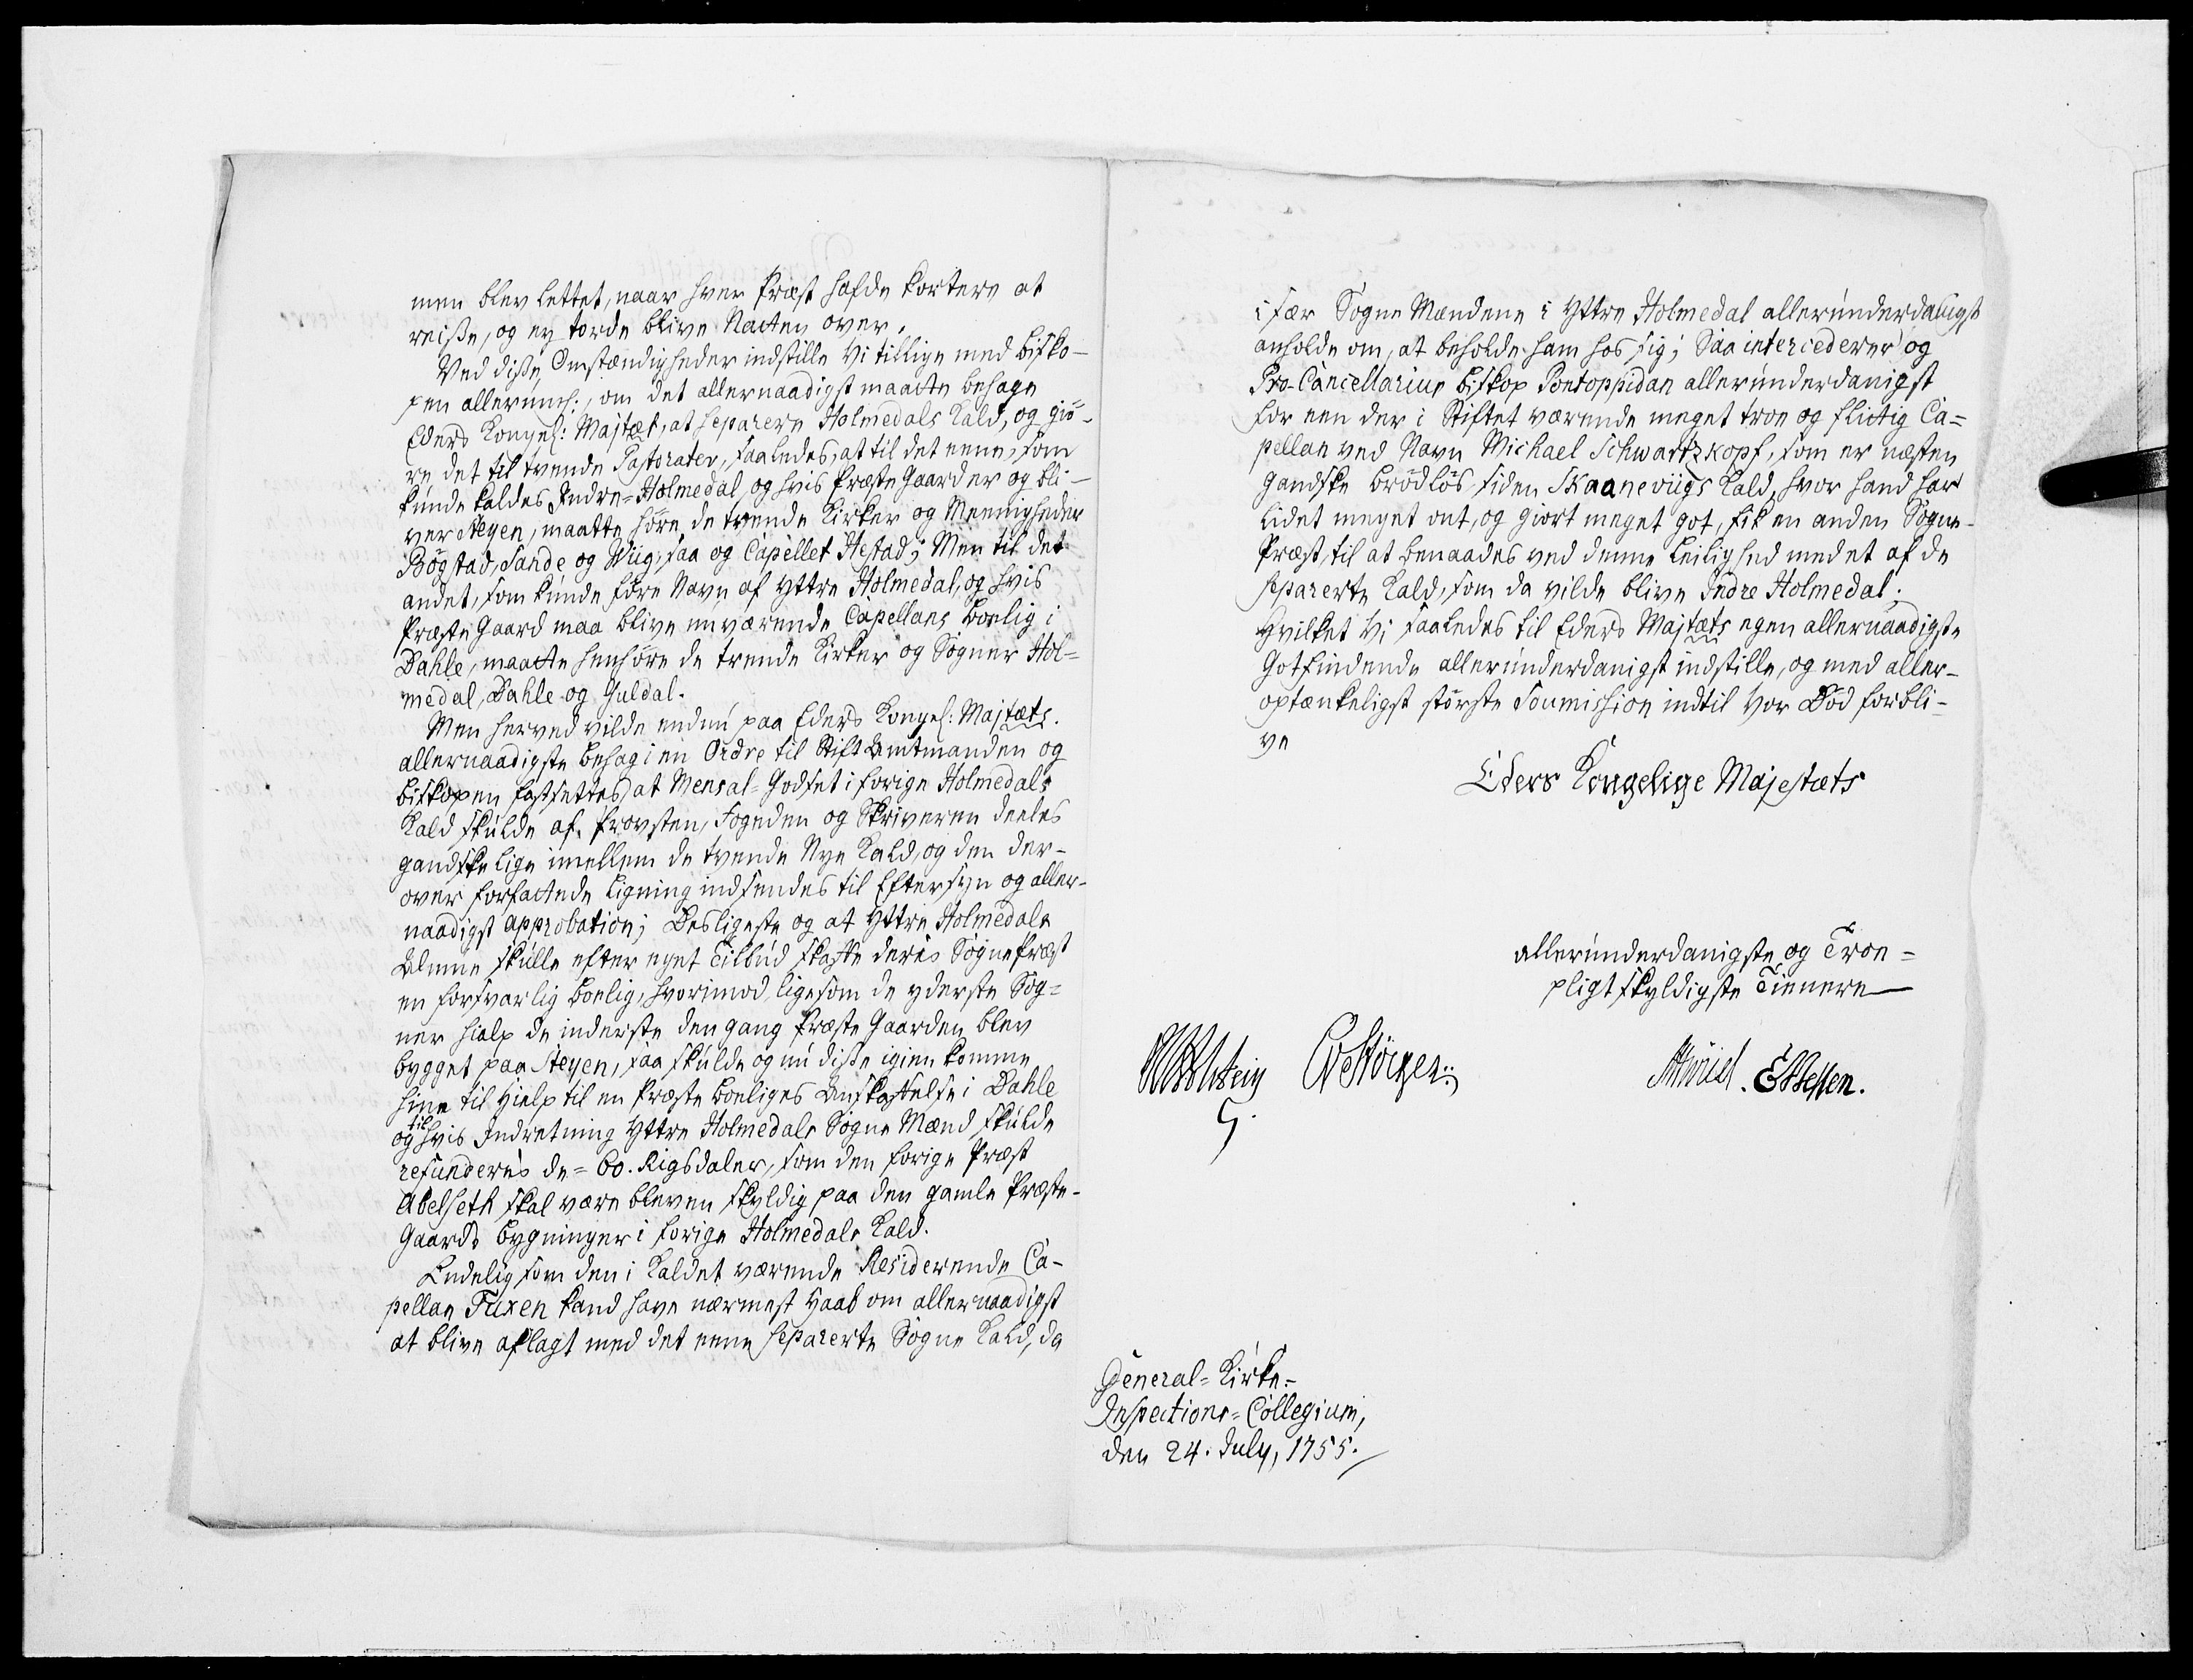 men blev lettet, naar hver Præst hafde kortere at
reiße, og ey torde blive Natten over.
Ved diße Omstændigheder indstille Vi tillige med Bisko-
pen allerund:, om det allernaadigst maatte behage
Eders Kongel: Majtæt, at separere Holmedals Kald, og giö-
re det til tvende Pastorater, saaledes, at til det eene, som
kunde kaldes Indre-Holmedal, og hvis Præste Gaard er og bli-
ver Steyen, maatte höre de tvende Kirker og Meenigheder
Bögstad, Sande og Wiig, saa og Capellet Hestad; Men til det
andet, som kunde före Navn af Yttre Holmedal, og hvis
Præste Gaard maa blive nuværende Capellans Boelig i
Dahle, maatte henhöre de trende Kirker og Sogner Hol=
medal, Dahle og Guldal.
Men herved vilde endnu paa Eders Kongel: Majtæts.
allernaadigste Behag i en Ordre til Stift Amtmanden og
Biskopen fastsettes, at Mensal-Godset i forige Holmedals
Kald skulde af Provsten, Fogden og Skriveren deeles
gandske lige imellem de tvende Nye Kald, og den der-
over forfattede Ligning indsendes til Eftersyn og aller-
naadigst approbation; Desligeste og at Yttre Holmedals
Almue skulle efter eget Tilbud skaffe deris Sogne Præst
en forsvarlig Boelig, hvorimod, ligesom de yderste Sog=
ner hialp de inderste den gang Præste Gaarden blev
bygget paa Steyen, saa skulde og nu diße igien komme
hine til Hielp til en Præste Boeliges Anskaffelse i Dahle
og til hvis Indretning Yttre Holmedals Sogne Mænd skulde
refunderes de = 60. Rigsdaler, som den forige Præst
Abelseth skal være bleven skyldig paa den gamle Præste-
Gaards Bygninger i forige Holmedals Kald.
Endelig som den i Kaldet værende Residerende Ca-
pellan Tuxen kand have nærmest Haab om allernaadigst
at blive aflagt med det eene separerte Sogne Kald, da
i sær Sogne Mændene i Yttre Holmedal allerunderdanigst
anholde om, at beholde ham hos sig; Saa intercederer og
Pro-Cancellarius Biskop Pontoppidan allerunderdanigst
for een der i Stiftet værende meget troe og flittig Ca=
pellan ved Navn Michael Schwartzkopf, som er næsten
gandske brödlös, siden Skaanevigs Kald, hvor hand har
lidet meget ont, og giort meget got, fik en anden Sogne-
Præst, til at benaades ved denne Leilighed med et af de
separerte Kald, som da vilde blive Indre Holmedal;
Hvilket Vi saaledes til Eders Majtæts egen allernaadigste
Gotfindende allerunderdanigst indstille, og med aller-
optænkeligst störste Soumission indtil Vor Död forbli-
ve
Eders Kongelige Majestæts
allerunderdanigste og Troe=
pligtskyldigste Tienere
Holstein
General-Kirke-
Inspections-Collegium,
den 24. July, 1755.